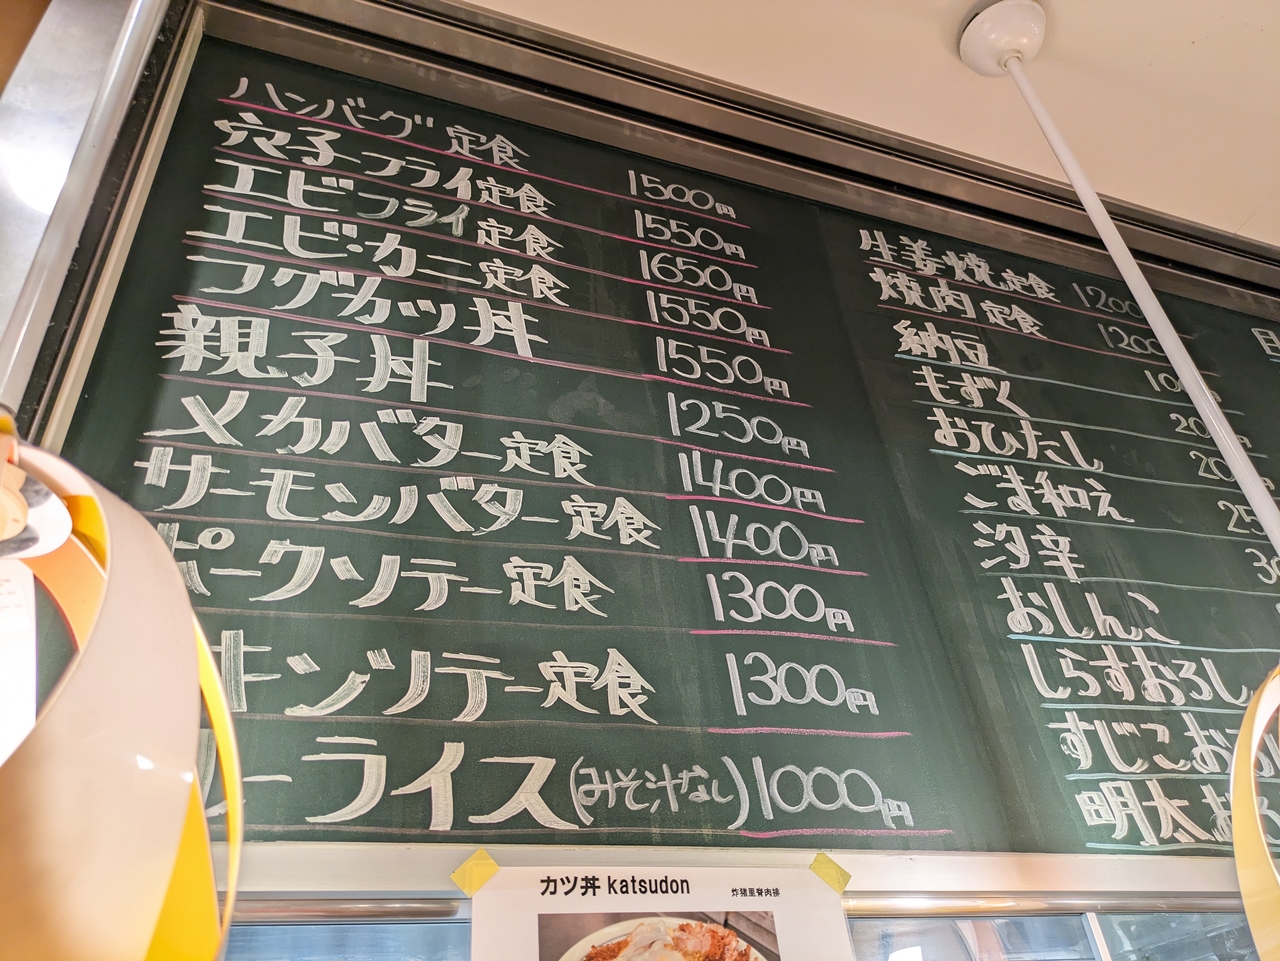 ハンバーグ定食 1500円
穴子フライ定食 1550円
エビフライ定食 1650円
エビ・カニ定食 1550円
フグカツ丼 1550円
親子丼 1250円
メカバター定食 1400円
サーモンバター定食 1400円
ポークソテー定食 1300円
チキンソテー定食 1300円
ーライス(みそ汁なし) 1000円
生姜焼定食 1200
焼肉定食 1200
納豆 10
もずく 20
おひたし 20
ごま和え 25
汐辛 30
おしんこ
しらすおろし
すじこおろ
明太お
カツ丼 katsudon 炸猪里脊肉排